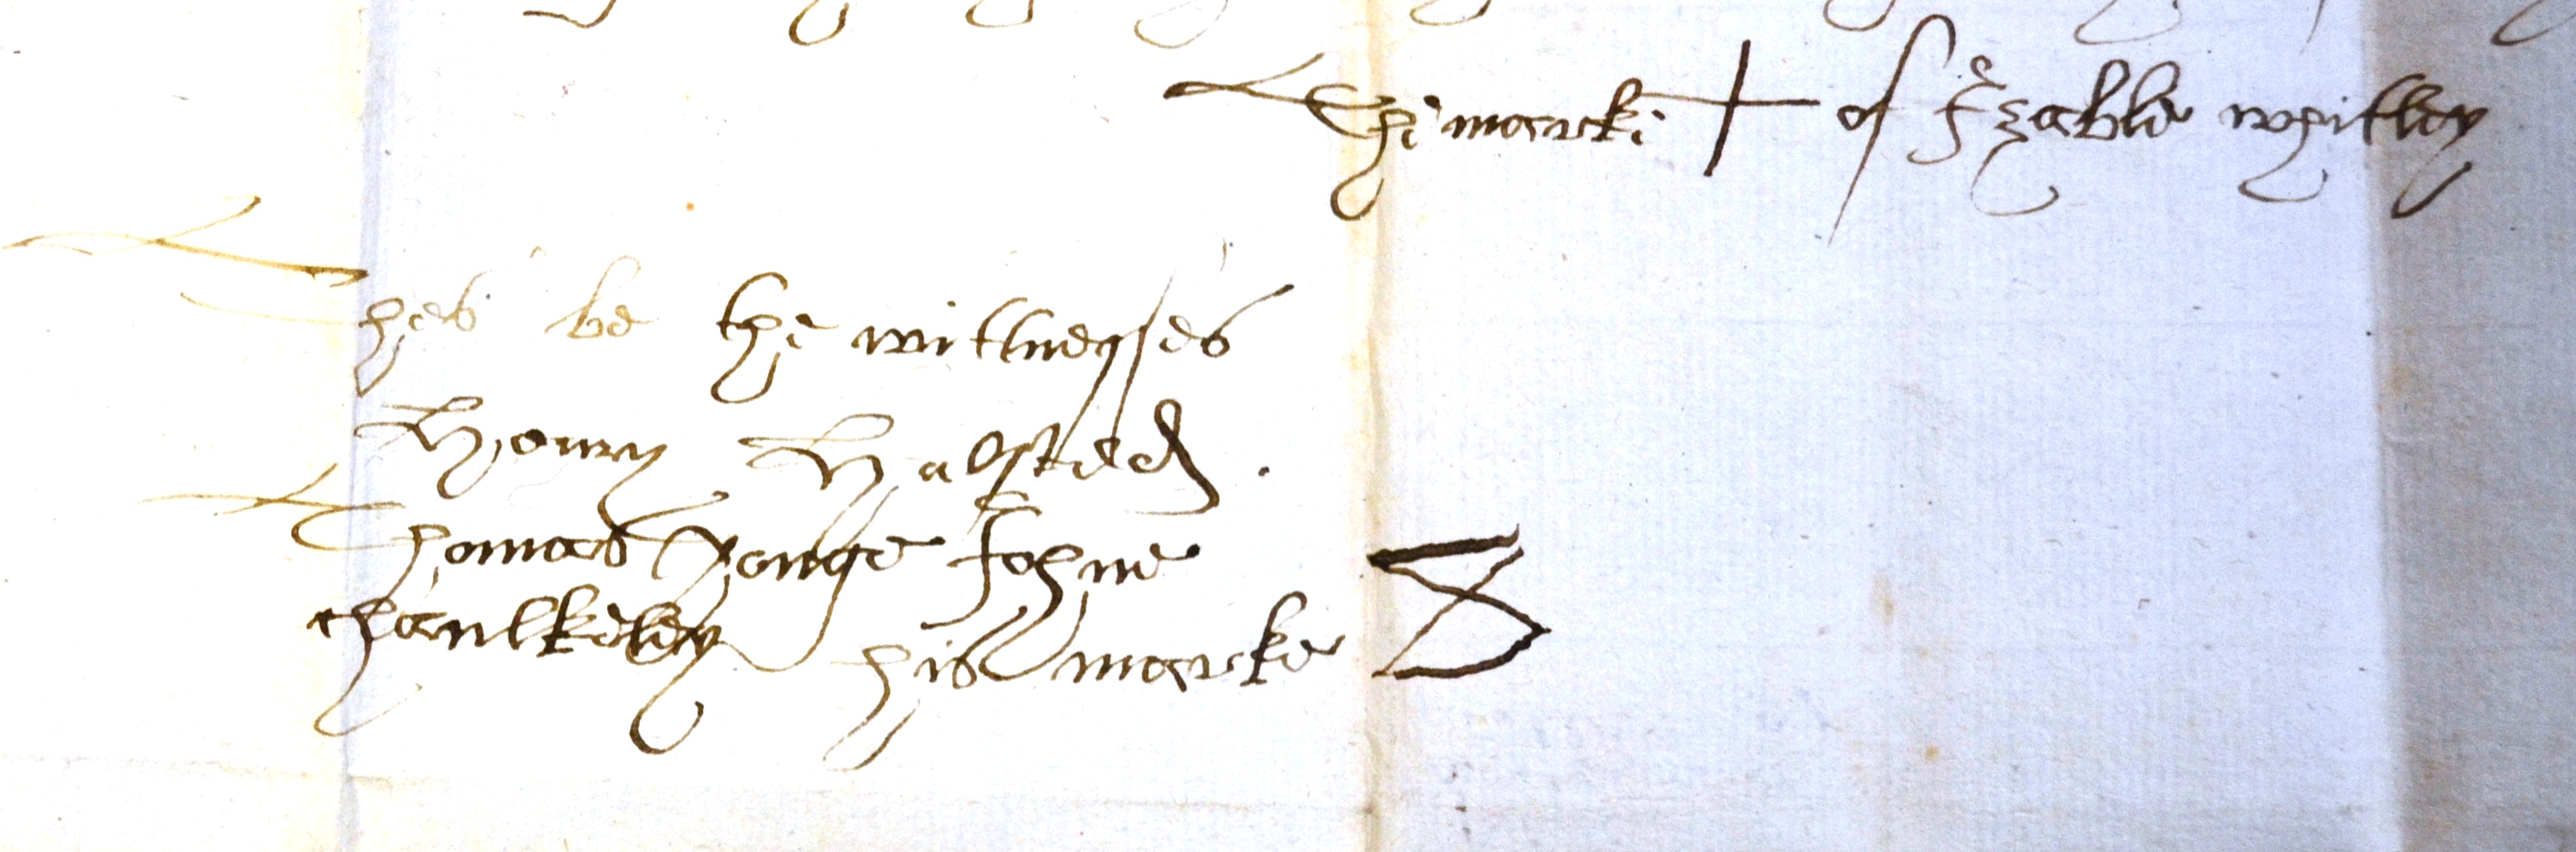 The marke + of Izable whitley
Thes be the wittnesses
Henry Halsted.
Thomas Yonge Johne
chaulkeley his marke